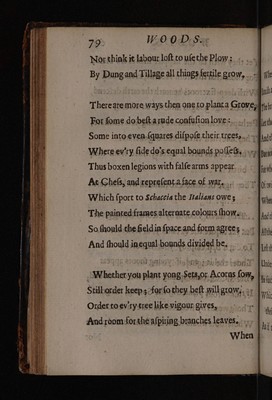 79 WOODS.
Nor think it labour lost to use the Plow:
By Dung and Tillage all things fertile grow.
There are more ways then one to plant a Grove,
For some do best a rude confusion love:
Some into even squares dispose their trees,
Where ev'ry side do's equal bounds possess.
Thus boxen legions with false arms appear
At Chess, and represent a face of war.
Which sport to Schaccia the Italians owe;
The painted frames alternate colours show.
So should the field in space and form agree;
And should in equal bounds divided be.
Whether you plant yong Sets, or Acorns sow,
Still order keep; for so they best will grow.
Order to ev'ry tree like vigour gives,
And room for the aspiring branches leaves.
When